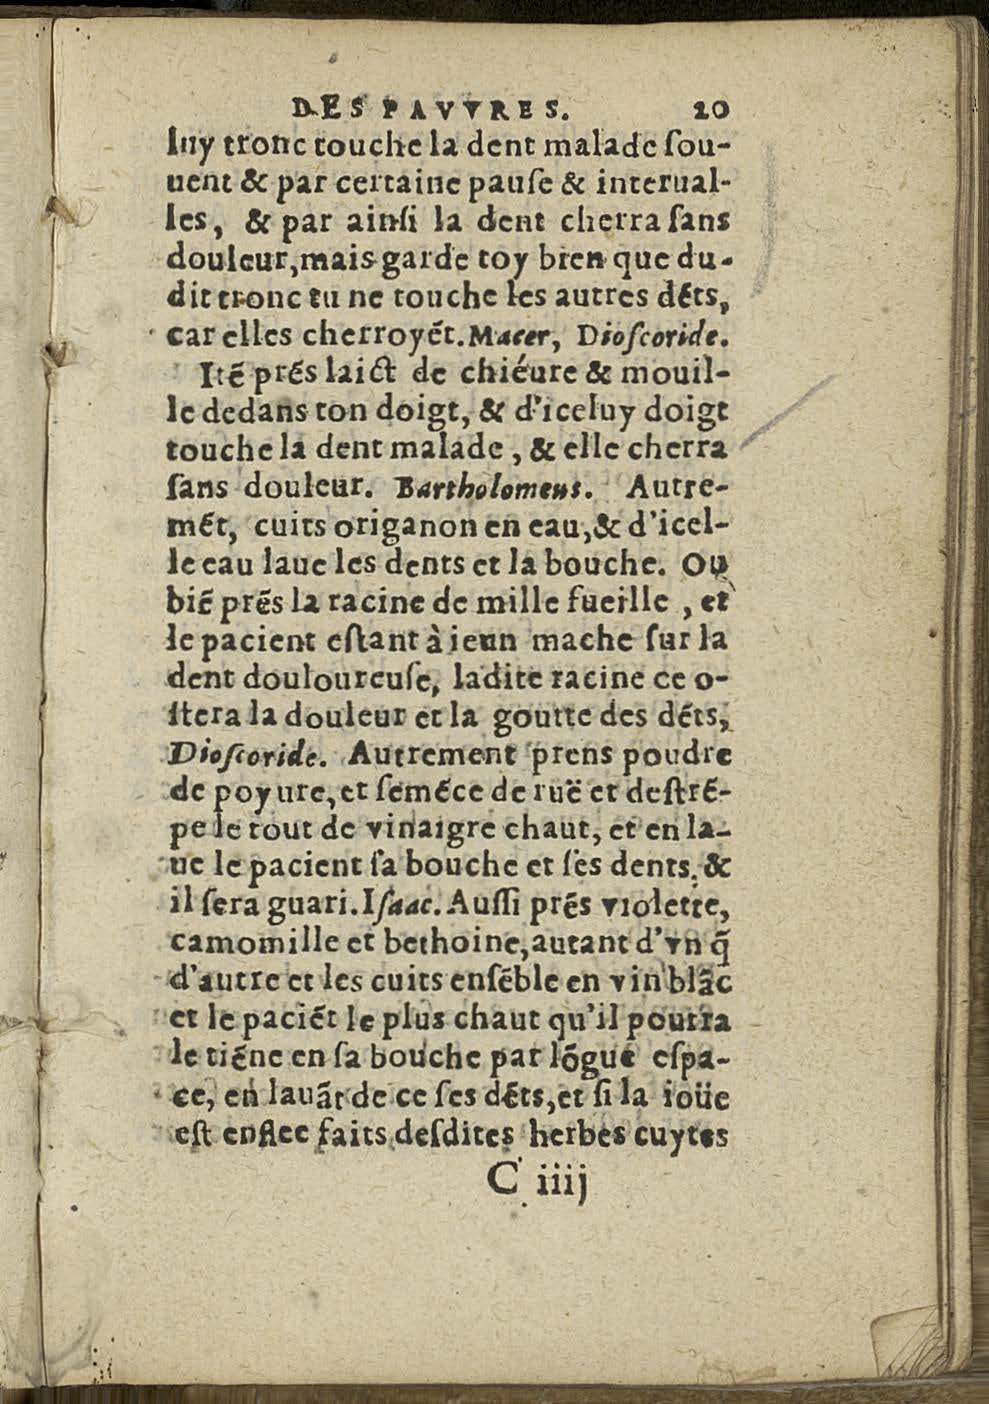 DES PAVVRES. 20
luy tronc touche la dent malade ſou-
uent & par certaine pauſe & interual-
les, & par ainſi la dent cherra ſans
douleur, mais garde toy bien que du-
dit tronc tu ne touche les autres dẽts,
car elles cherroyẽt. Macer, Dioſcoride.
Itẽ prẽs laict de chiéure & mouil-
le dedans ton doigt, & d'iceluy doigt
touche la dent malade, & elle cherra
ſans douleur. Bartholomeus. Autre-
mẽt, cuits origanon en eau, & d'icel-
le eau laue les dents et la bouche. Ou
biẽ prẽs la racine de mille fueille, et
le pacient eſtant à ieun mache ſur la
dent douloureuſe, ladite racine ce o-
ſtera la douleur et la goutte des dẽts,
Dioſcoride. Autrement prens poudre
de poyure, et ſemẽce de ruë et deſtrẽ-
pe le tout de vinaigre chaut, et en la-
ue le pacient ſa bouche et ſes dents, &
il ſera guari. Iſaac. Auſſi prẽs violette,
camomille et bethoine, autant d'vn q̃
d'autre et les cuits enſẽble en vin blãc
et le paciẽt le plus chaut qu'il pourra
le tiẽne en ſa bouche par lõgue eſpa-
ce, en lauãt de ce ſes dẽts, et ſi la ioüe
eſt enflee faits deſdites herbes cuytes
C iiij